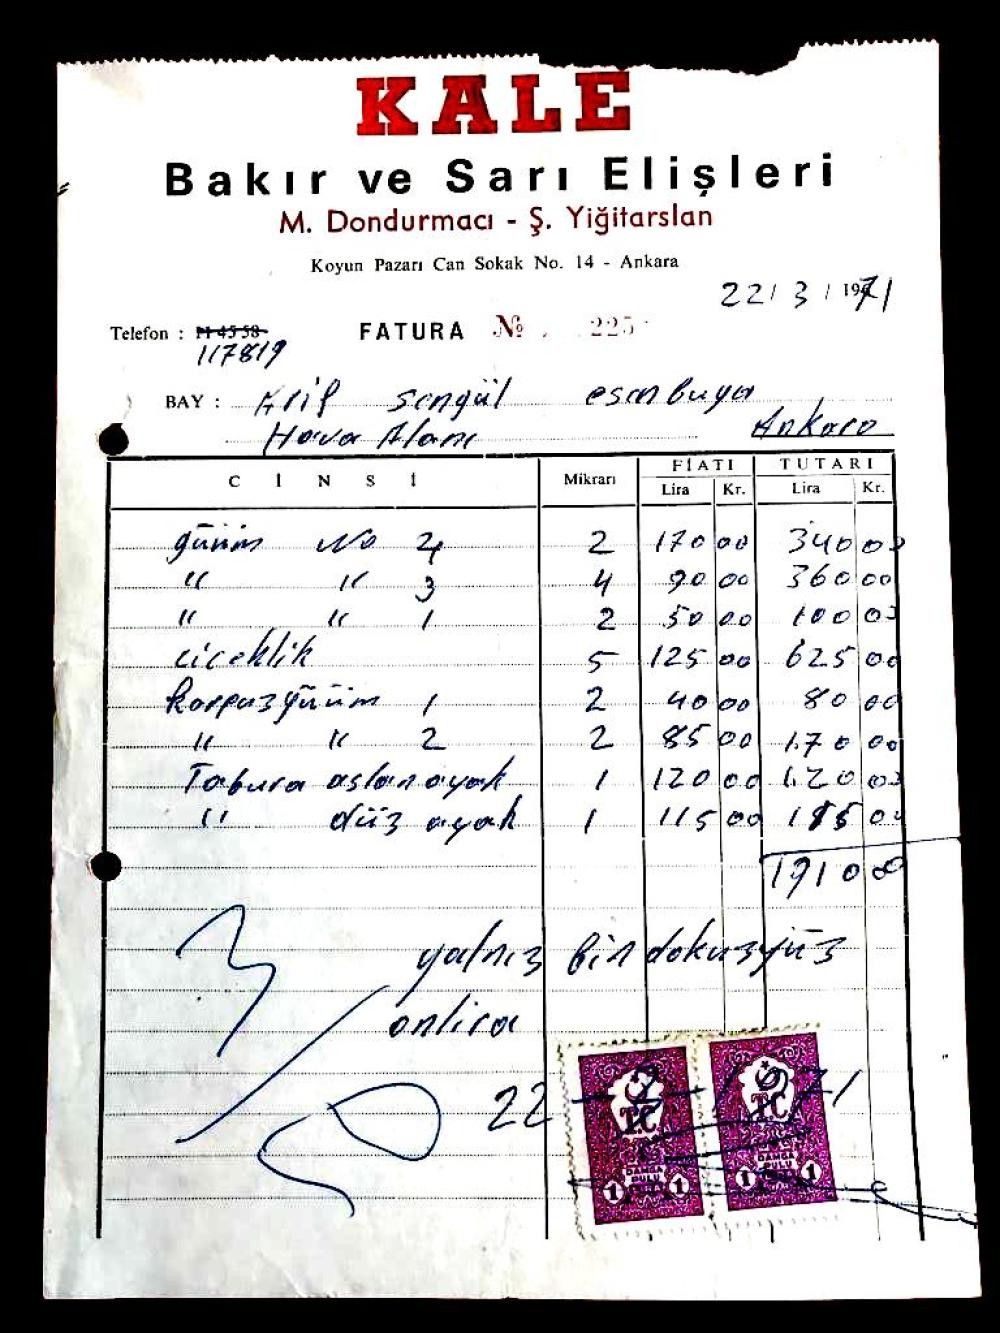 KALE
Bakır ve Sarı Elişleri
M. Dondurmacı - Ş. Yiğitarslan
Koyun Pazarı Can Sokak No. 14 - Ankara
22 / 3 / 1971
Telefon : 11 45 58
117819
FATURA № 225
BAY : Arif Sengül esenbuga
Hava Alanı Ankara
CİNSİ Mikrarı FİATI TUTARI
Lira Kr. Lira Kr.
güüm No 4 2 170 00 340 00
" " 3 4 90 00 360 00
" " 1 2 50 00 100 00
ciceklik 5 125 00 625 00
karpuz güüm 1 2 40 00 80 00
" " 2 2 85 00 170 00
Tabura aslan ayak 1 120 00 120 00
" düz ayak 1 115 00 115 00
1910 00
yalnız bin dokuzyüz
onlira
22 - 3 - 1971
T.C. T.C.
DAMGA PULU DAMGA PULU
1 1 1 1